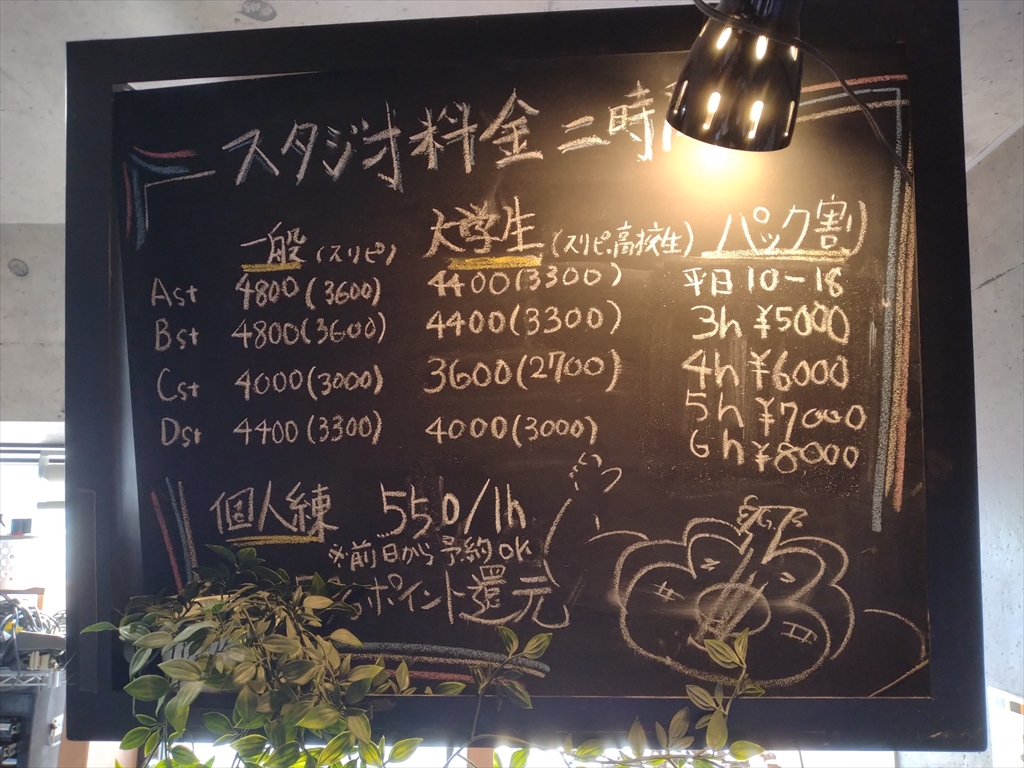 スタジオ料金 二時
一般(スリピ) 大学生(スリピ,高校生) パック割
Ast 4800(3600) 4400(3300) 平日10-18
Bst 4800(3600) 4400(3300) 3h ¥5000
Cst 4000(3000) 3600(2700) 4h ¥6000
Dst 4400(3300) 4000(3000) 5h ¥7000
6h ¥8000
個人練 550/1h
※前日から予約OK
ポイント還元